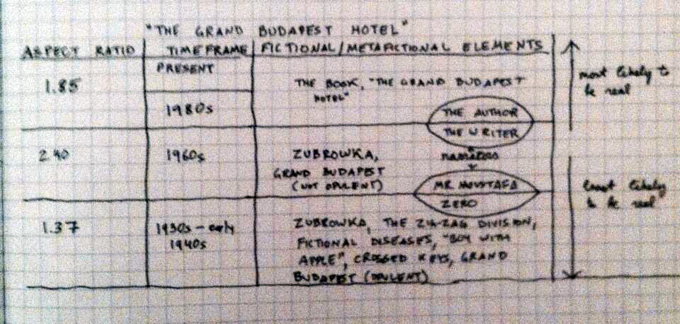 "THE GRAND BUDAPEST HOTEL"
ASPECT RATIO TIMEFRAME FICTIONAL/METAFICTIONAL ELEMENTS
PRESENT
1.85
THE BOOK, "THE GRAND BUDAPEST
HOTEL"
1980s
THE AUTHOR
THE WRITER
most likely to
be real
2.40
1960s
ZUBROWKA,
GRAND BUDAPEST
(NOT OPULENT)
narrators
MR MOUSTAFA
ZERO
least likely
to be real
1.37
1930s - early
1940s
ZUBROWKA, THE ZIG-ZAG DIVISION,
FICTIONAL DISEASES, "BOY WITH
APPLE", CROSSED KEYS, GRAND
BUDAPEST (OPULENT)